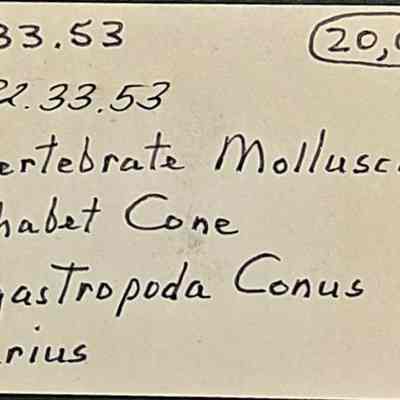 33.53 20,
22.33.53
ertebrate Mollusc
habet Cone
gastropoda Conus
rius